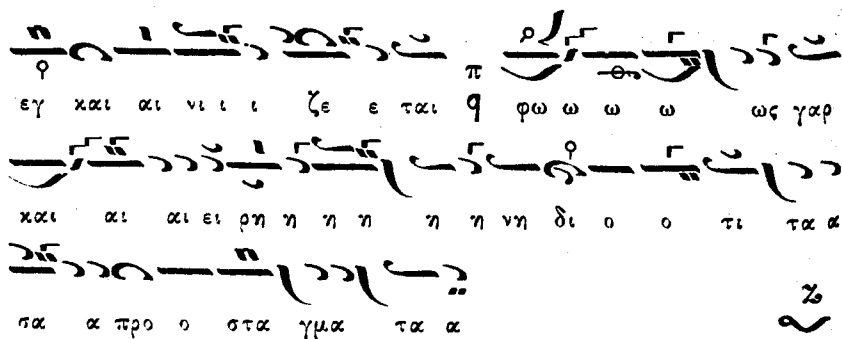 εγ και αι νι ι ι ζε ε ται π q φω ω ω ω ως γαρ
και αι αι ει ρη η η η η η νη δι ο ο τι τα α
σα α προ ο στα γμα τα α